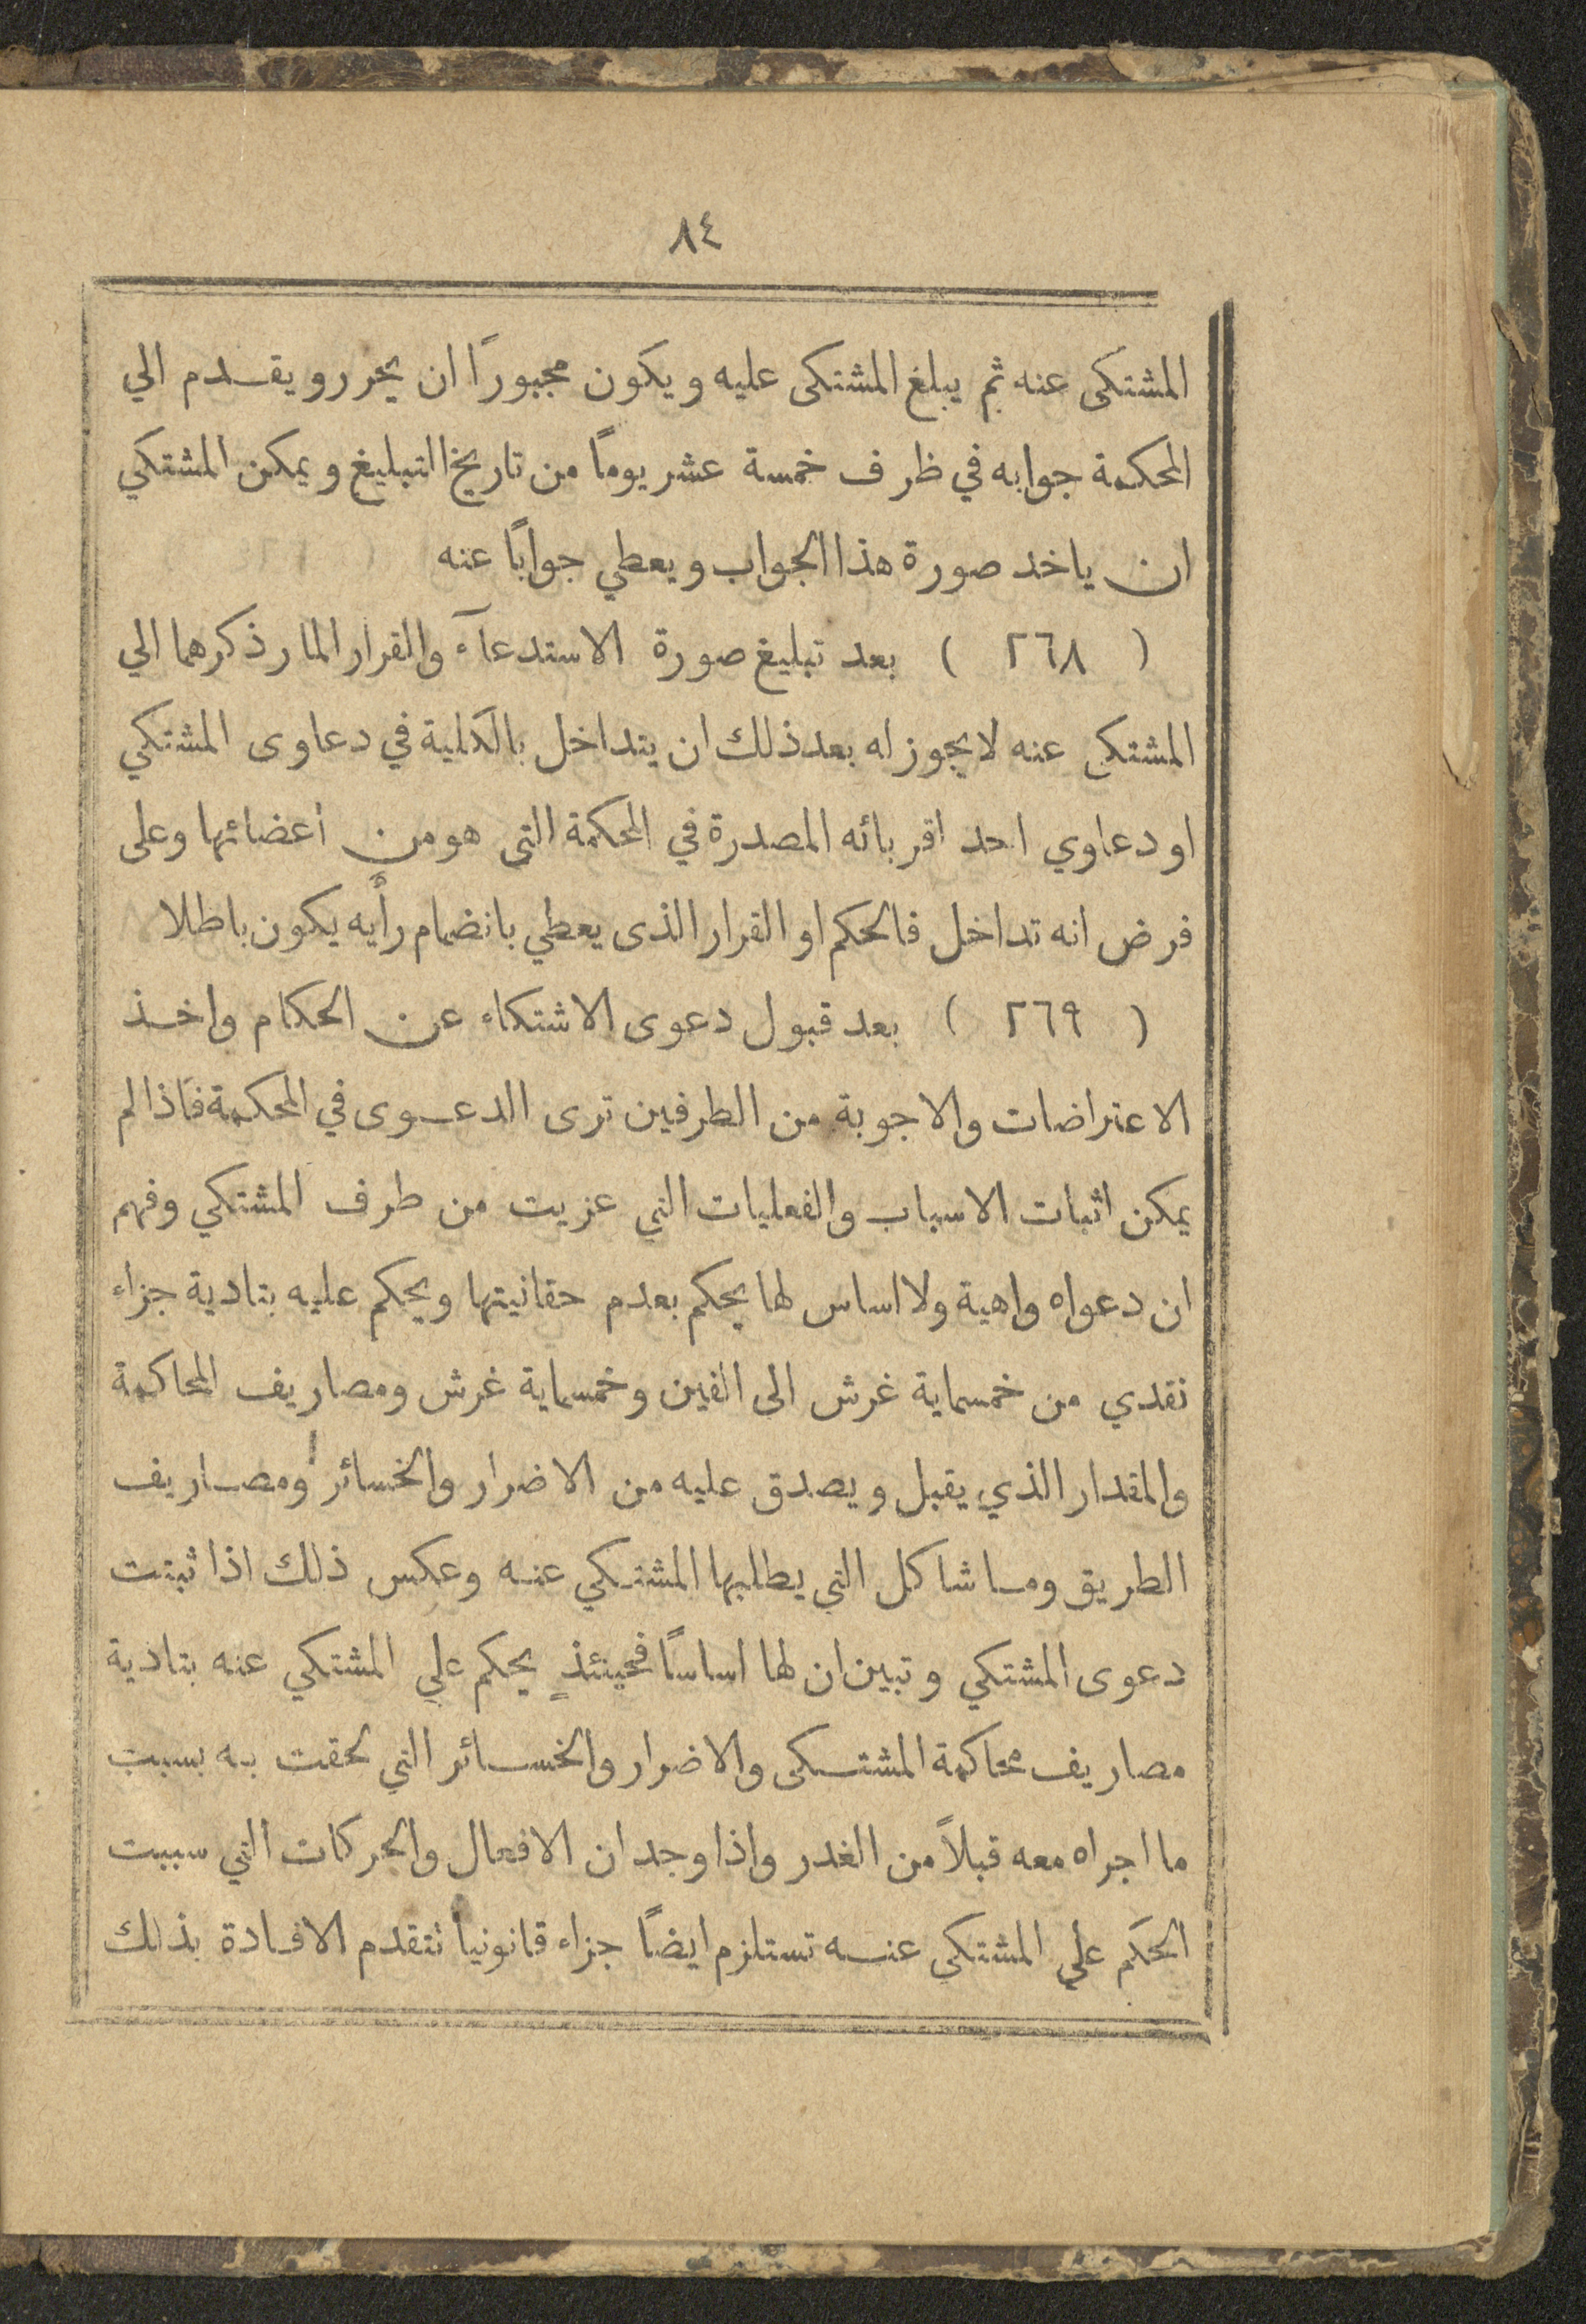 ٨٤
المشتكى عنه ثم يبلغ المشتكى عليه ويكون مجبورًا ان يحرر ويقدم الي
المحكمة جوابه في ظرف خمسة عشر يومًا من تاريخ التبليغ ويمكن المشتكي
ان ياخد صورة هذا الجواب ويعطي جوابًا عنه
( ٢٦٨ ) بعد تبليغ صورة الاستدعآء والقرار المار ذكرهما الي
المشتكي عنه لا يجوز له بعد ذلك ان يتداخل بالكلية في دعاوى المشتكي
او دعاوي احد اقربائه المصدرة في المحكمة التى هو من اعضائها وعلى
فرض انه تداخل فالحكم او القرار الذى يعطي بانضمام رأيه يكون باطلا
( ٢٦٩ ) بعد قبول دعوى الاشتكاء عن الحكام واخذ
الاعتراضات والاجوبة من الطرفين ترى الدعوى في المحكمة فاذا لم
يمكن اثبات الاسباب والفعليات التي عزيت من طرف المشتكي وفهم
ان دعواه واهية ولا اساس لها يحكم بعدم حقانيتها ويحكم عليه بتادية جزاء
نقدي من خمسماية غرش الى الفين وخمسماية غرش ومصاريف المحاكمة
والمقدار الذي يقبل ويصدق عليه من الاضرار والخسائر ومصاريف
الطريق وما شاكل التي يطلبها المشتكي عنه وعكس ذلك اذا ثبتت
دعوى المشتكي وتبين ان لها اساسًا فحينئذٍ يحكم علي المشتكي عنه بتادية
مصاريف محاكمة المشتكى والاضرار والخسائر التي لحقت به بسبب
ما اجراه معه قبلاً من الغدر واذا وجد ان الافعال والحركات التي سببت
الحكم علي المشتكي عنه تستلزم ايضًا جزاء قانونيا تتقدم الافادة بذلك